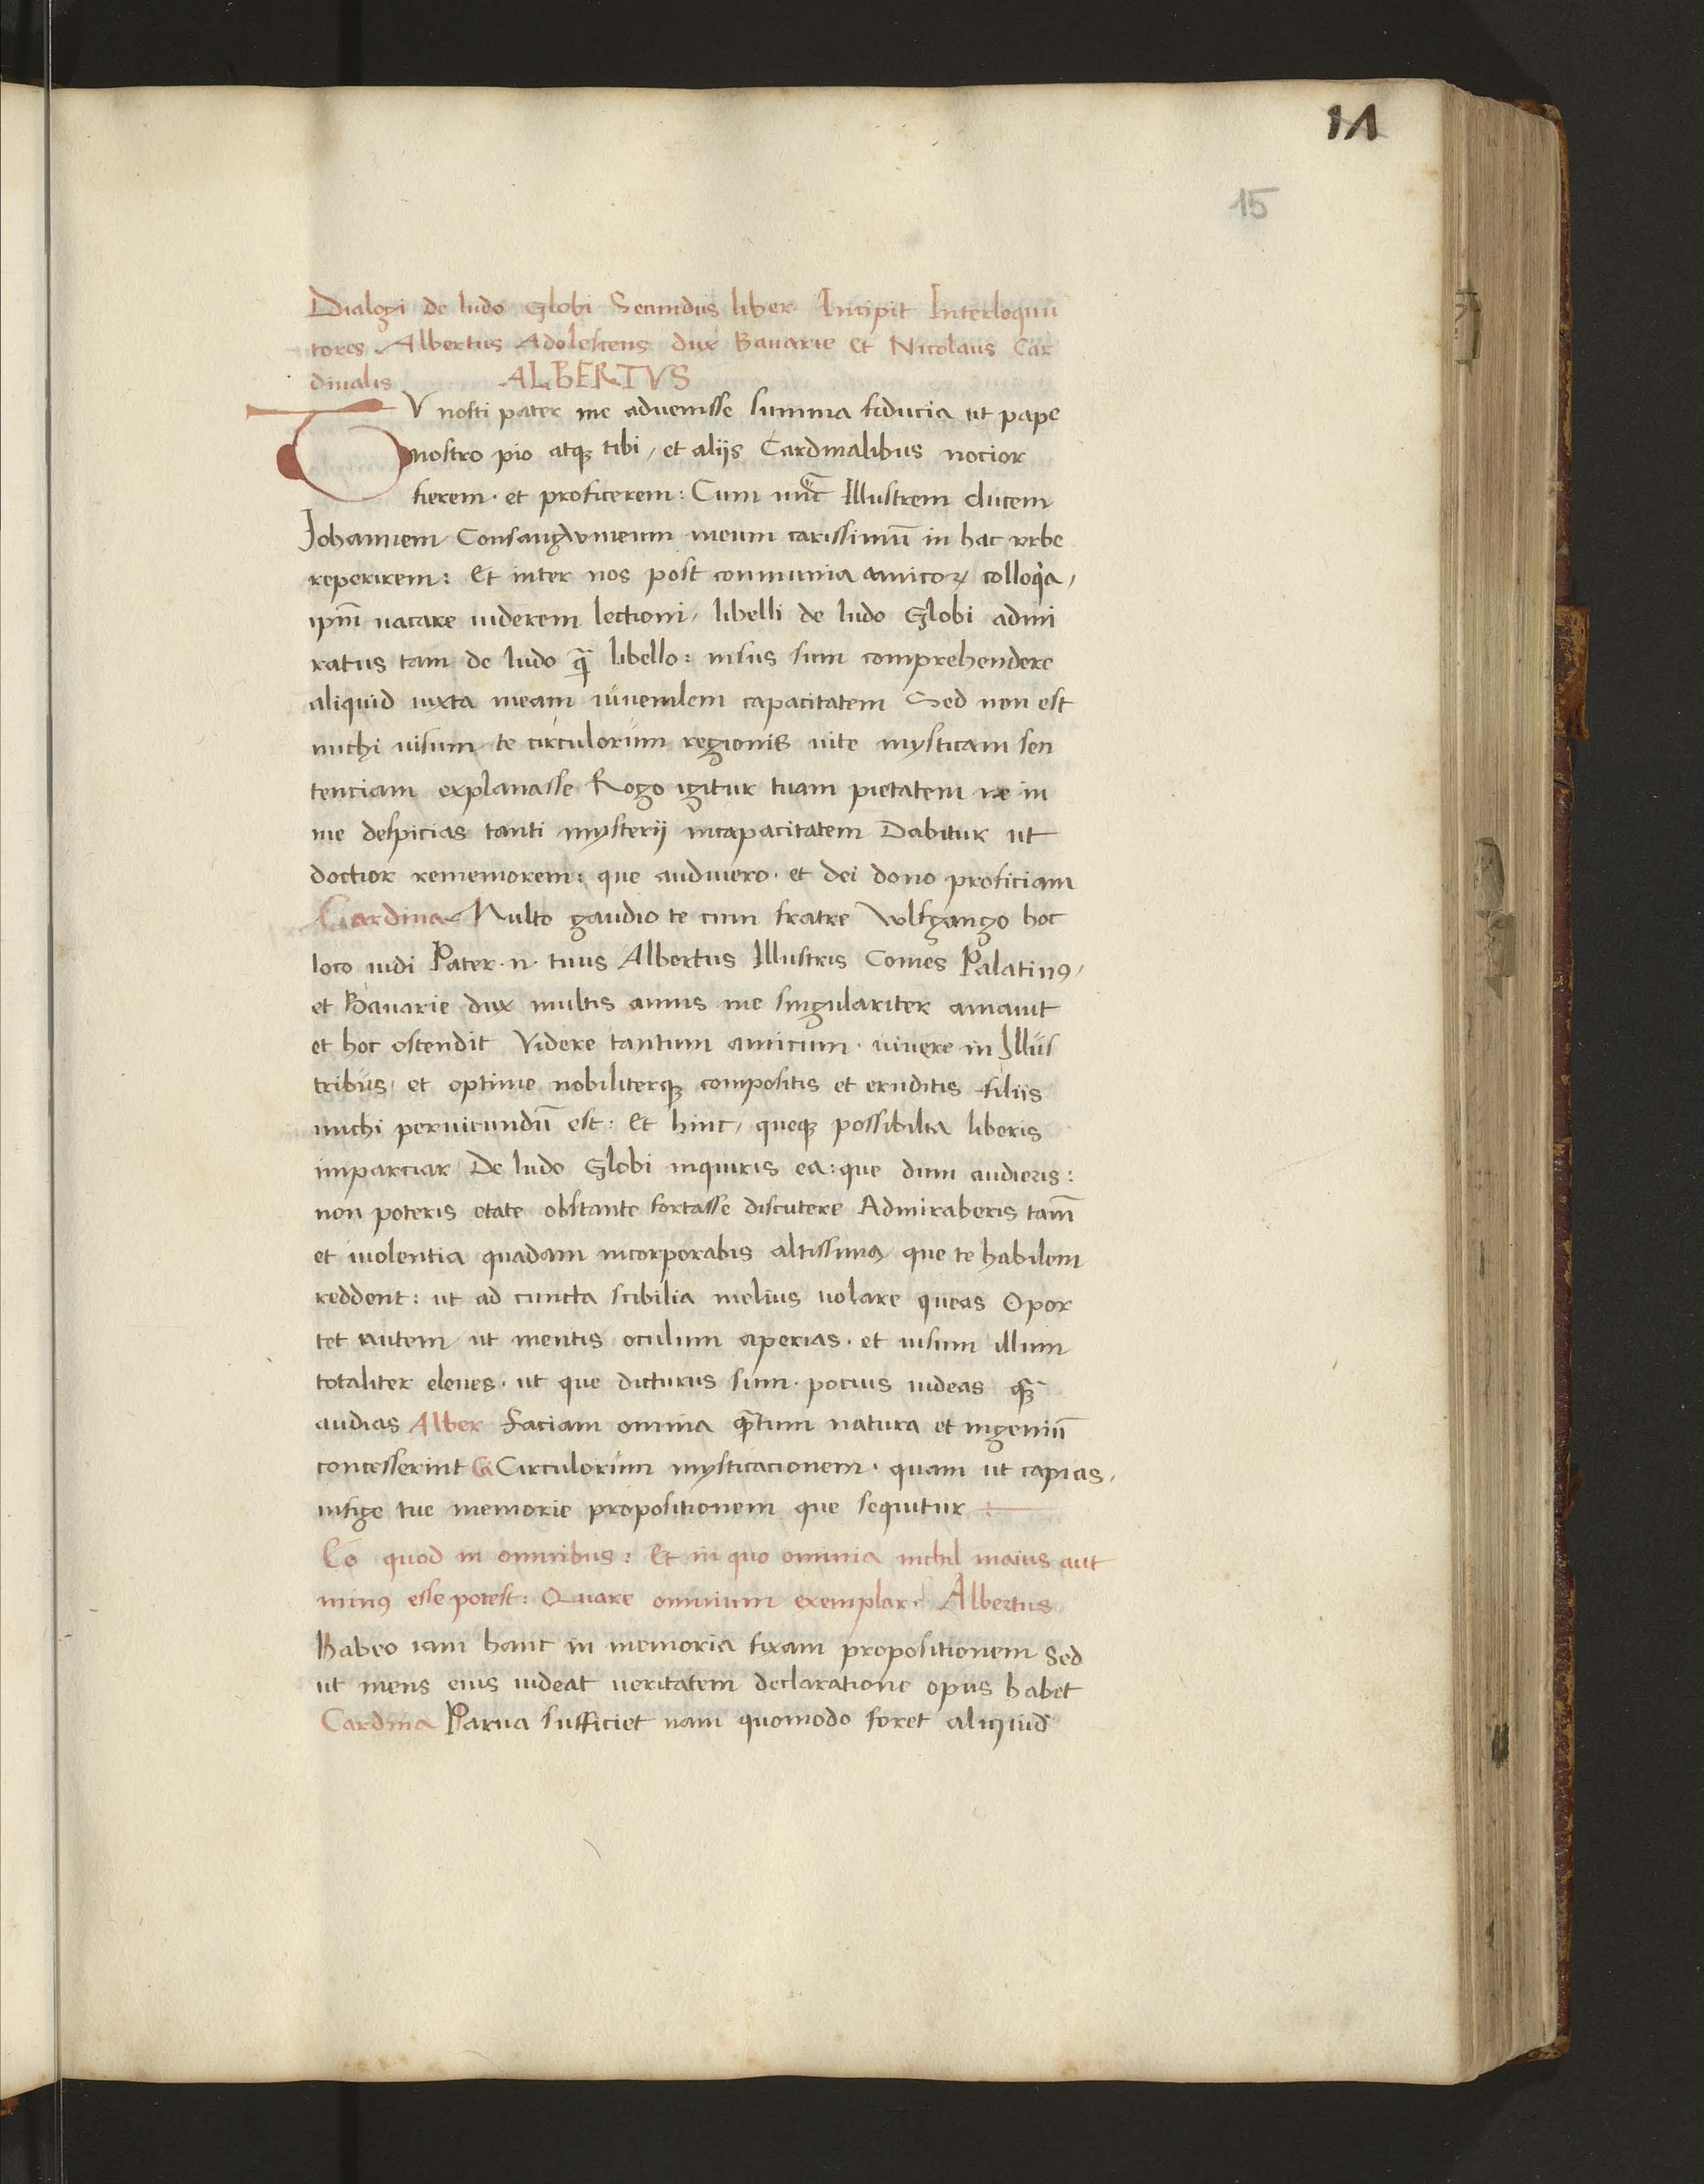 14
15
Dialogi de ludo Globi Secundus liber Incipit Interloquu
tores Albertus Adolescens dux Bavarie et Nicolaus Car
dinalis ALBERTVS
TV nosti pater me advenisse summa fiducia ut pape
nostro pio atqꝫ tibi, et aliis Cardinalibus nocior
fierem · et proficerem : Cum nūc Illustrem ducem
Johannem Consangvineum meum carissimū in hac vrbe
reperirem : Et inter nos post communia amicoꝝ colloqia,
ipm̄ vacare viderem lectioni, libelli de ludo Globi admi
ratus tam de ludo qꝫ̄ libello : nisus sum comprehendere
aliquid iuxta meam iuvenilem capacitatem Sed non est
michi visum te circulorum regionis vite mysticam sen
tenciam explanasse Rogo igitur tuam pietatem ne in
me despicias tanti mysterij incapacitatem Dabitur ut
doctior rememorem : que audivero · et dei dono proficiam
Cardina Multo gaudio te cum fratre Wlfgango hoc
loco vidi Pater · n · tuus Albertus Illustris Comes Palatinꝯ,
et Bavarie dux multis annis me singulariter amavit
et hoc ostendit Videre tantum amicum · vivere in Illus
tribus, et optime nobiliterqꝫ compositis et eruditis filiis
michi pervicundū est : Et hinc, queqꝫ possibilia liberis
imparciar De ludo Globi inquiris ea : que dum audieris :
non poteris etate obstante fortasse discutere Admiraberis tam̄
et violentia quadam incorporabis altissima que te habilem
reddent : ut ad cuncta scibilia melius volare queas Opor
tet autem ut mentis oculum aperias · et visum illum
totaliter eleves · ut que dicturus sum · pocius videas qꝫ̄
audias Alber Faciam omnia qꝫ̄tum natura et ingeniū
concesserint Ca Circulorum mysticacionem · quam ut capias,
infige tue memorie propositionem que sequitur :
Eo quod in omnibus : Et in quo omnia nichil maius aut
minꝯ esse potest : Quare omnium exemplar · Albertus
Habeo iam hanc in memoria fixam propositionem Sed
ut mens eius videat veritatem declaratione opus habet
Cardina Parva sufficiet nam quomodo foret aliquid